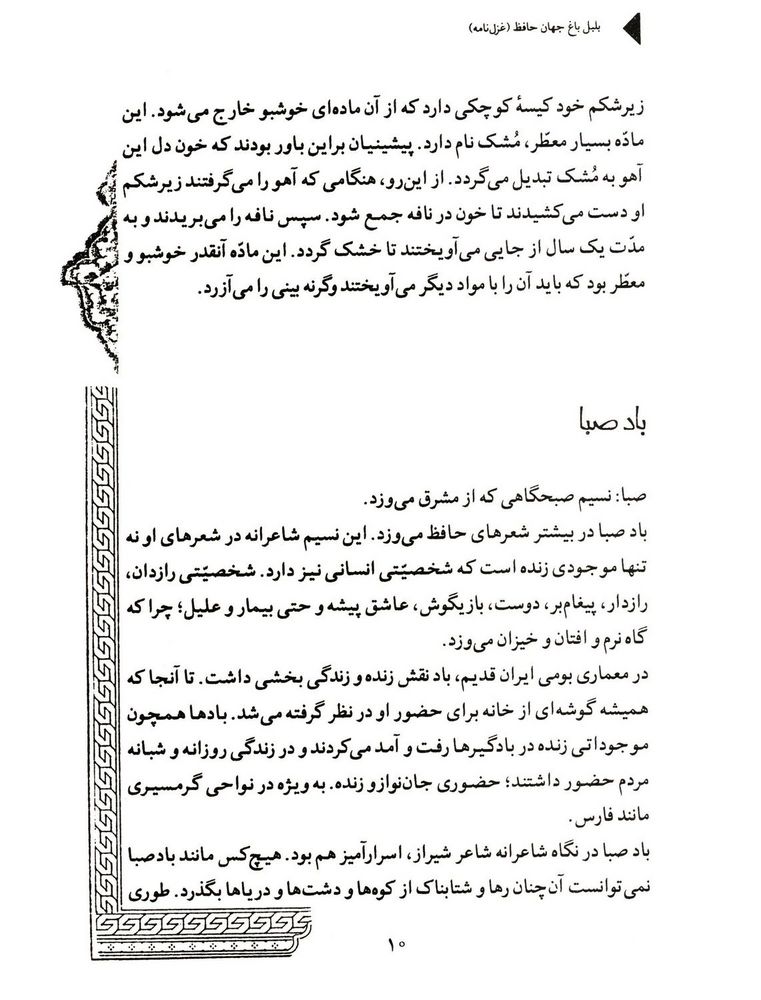 بلبل باغ جهان حافظ (غزل‌نامه)
زیرشکم خود کیسهٔ کوچکی دارد که از آن ماده‌ای خوشبو خارج می‌شود. این
مادّه بسیار معطّر، مُشک نام دارد. پیشینیان براین باور بودند که خون دل این
آهو به مُشک تبدیل می‌گردد. از این‌رو، هنگامی که آهو را می‌گرفتند زیرشکم
او دست می‌کشیدند تا خون در نافه جمع شود. سپس نافه را می‌بریدند و به
مدّت یک سال از جایی می‌آویختند تا خشک گردد. این مادّه آنقدر خوشبو و
معطّر بود که باید آن را با مواد دیگر می‌آویختند وگرنه بینی را می‌آزرد.
باد صبا
صبا: نسیم صبحگاهی که از مشرق می‌وزد.
باد صبا در بیشتر شعرهای حافظ می‌وزد. این نسیم شاعرانه در شعرهای او نه
تنها موجودی زنده است که شخصیّتی انسانی نیز دارد. شخصیّتی رازدان،
رازدار، پیغام‌بر، دوست، بازیگوش، عاشق پیشه و حتی بیمار و علیل؛ چرا که
گاه نرم و افتان و خیزان می‌وزد.
در معماری بومی ایران قدیم، باد نقش زنده و زندگی بخشی داشت. تا آنجا که
همیشه گوشه‌ای از خانه برای حضور او در نظر گرفته می‌شد. بادها همچون
موجوداتی زنده در بادگیرها رفت و آمد می‌کردند و در زندگی روزانه و شبانه
مردم حضور داشتند؛ حضوری جان‌نواز و زنده. به ویژه در نواحی گرمسیری
مانند فارس.
باد صبا در نگاه شاعرانه شاعر شیراز، اسرارآمیز هم بود. هیچ‌کس مانند بادصبا
نمی‌توانست آن‌چنان رها و شتابناک از کوه‌ها و دشت‌ها و دریاها بگذرد. طوری
۱۰